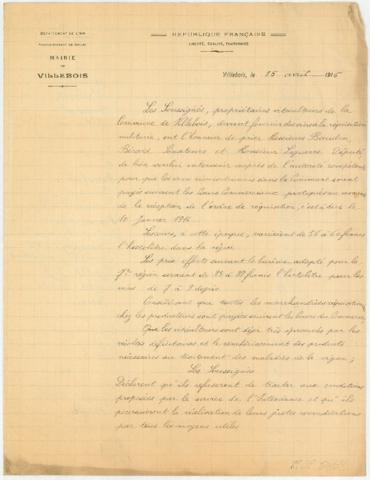 DÉPARTEMENT DE L'AIN
ARRONDISSEMENT DE BELLEY
MAIRIE
DE
VILLEBOIS
RÉPUBLIQUE FRANÇAISE
LIBERTÉ, ÉGALITÉ, FRATERNITÉ
Villebois, le 25 avril 1916
Les Soussignés, propriétaires viticulteurs de la
Commune de Villebois, devant fournir du vin à la réquisition
militaire, ont l'honneur de prier Messieurs
Bérard, Sénateurs et Monsieur Député
de bien vouloir intervenir auprès de l'autorité compétente
pour que les vins réquisitionnés dans la Commune soient
payés suivant les Cours Commerciaux pratiqués au moment
de la réception de l'ordre de réquisition, c'est à dire le
10 Janvier 1916.
Les cours, à cette époque, variaient de 55 à 60 francs
l'hectolitre, dans la région.
Les prix offerts suivant le barème adopté pour la
7e région seraient de l'hectolitre pour les
vins de 7 à 9 degrés.
Considérant que toutes les marchandises réquisitionnées
chez les producteurs sont payées suivant les Cours du Commerce
Que les viticulteurs sont déjà très éprouvés par les
récoltes déficitaires et le renchérissement des produits
nécessaires au traitement des maladies de la vigne;
Les Soussignés
Déclarent qu'ils refuseront de traiter aux conditions
proposées par le service de l'Intendance et qu'ils
poursuivront la réalisation de leurs justes revendications
par tous les moyens utiles